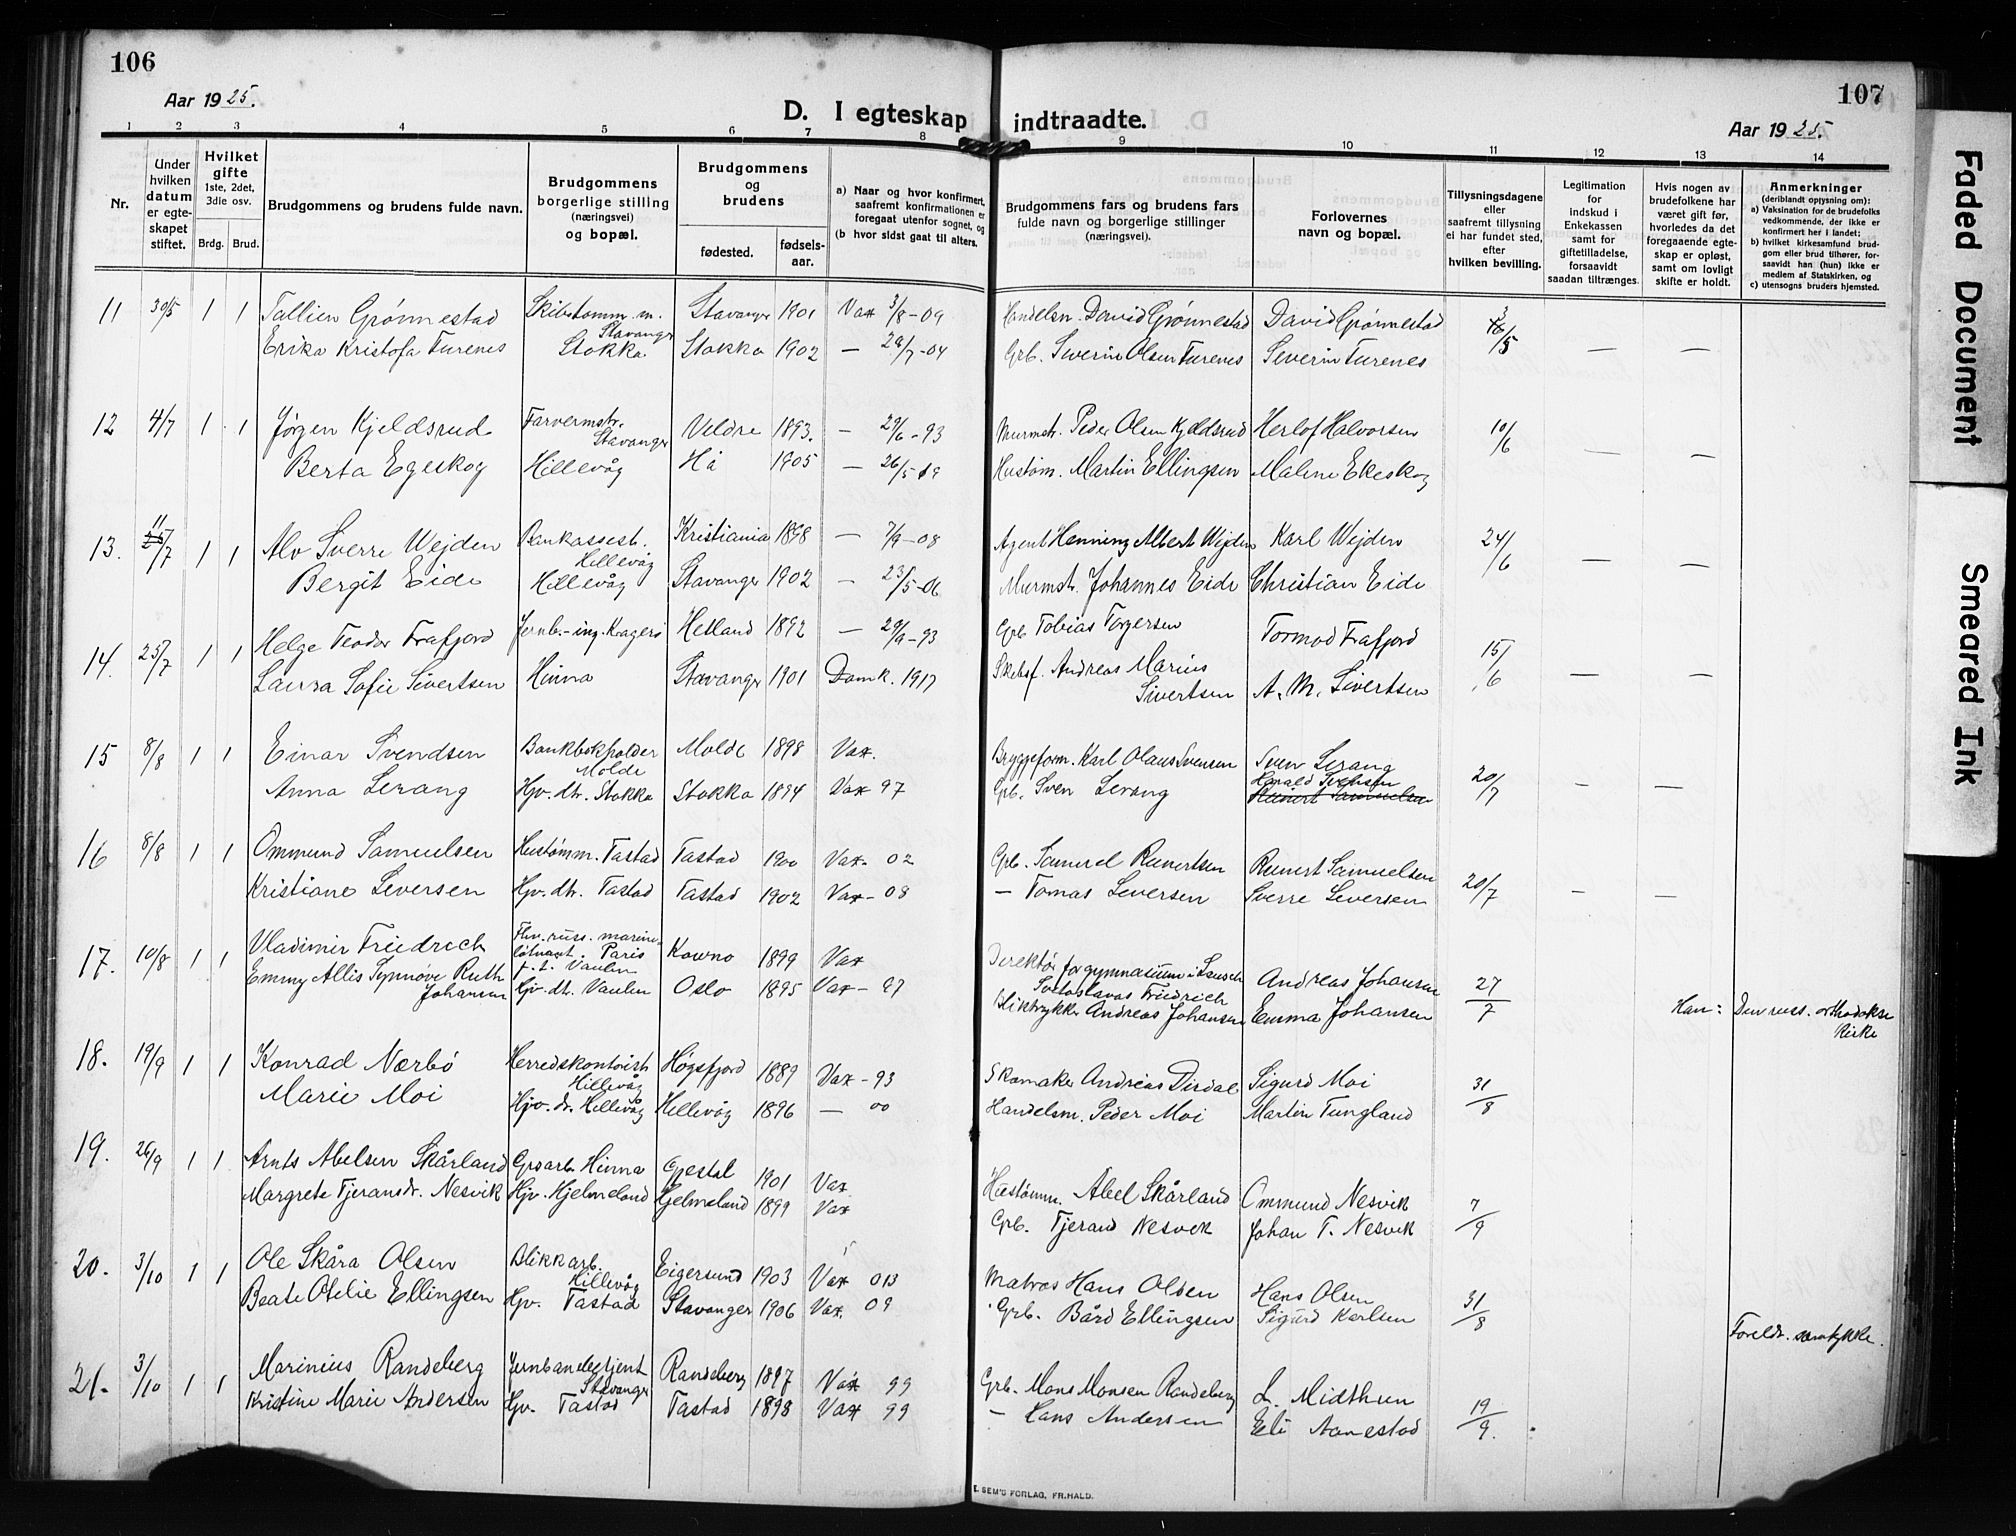 106
Aar 1925.
D. I egteskap indtraadte.
107
Aar 1925.
1 2 3 4 5 6 7 8 9 10 11 12 13 14
Nr.
Under hvilken datum er egteskapet stiftet.
Hvilket gifte 1ste, 2det, 3die osv.
Brdg. Brud.
Brudgommens og brudens fulde navn.
Brudgommens borgerlige stilling (næringsvei) og bopæl.
Brudgommens og brudens
fødested. fødselsaar.
a) Naar og hvor konfirmert, saafremt konfirmationen er foregaat utenfor sognet, og
(b hvor sidst gaat til alters.
Brudgommens fars og brudens fars fulde navn og borgerlige stillinger (næringsvei).
Forlovernes navn og bopæl.
Tillysningsdagene eller saafremt tillysning ei har fundet sted, efter hvilken bevilling.
Legitimation for indskud i Enkekassen samt for giftetilladelse, forsaavidt saadan tiltrænges.
Hvis nogen av brudefolkene har været gift før, hvorledes da det foregaaende egteskap er opløst, samt om lovligt skifte er holdt.
Anmerkninger (deriblandt oplysning om):
a) Vaksination for de brudefolks vedkommende, der ikke er konfirmert her i landet;
b) hvilket kirkesamfund brudgom eller brud tilhører, forsaavidt han (hun) ikke er medlem af Statskirken, og
c) utensogns bruders hjemsted.
11 30/5 1 1 Tallien Grønnestad Skibstømm.m. Stavanger Stavanger 1901 Vax 3/8-09 Handelsm. David Grønnestad David Grønnestad 3/5
Erika Kristofa Turenes Stokka Stokka 1902 — 29/7-04 Grb. Severin Olsen Turenes Severin Turenes — —
12 4/7 1 1 Jørgen Kjeldsrud Farvermstr. Stavanger Veldre 1893. — 29/6-93 Murmstr. Peder Olsen Kjeldsrud Herlof Halvorsen 10/6
Berta Egeskog Hillevåg Hå 1905 — 26/5-19 Hustøm. Martin Ellingsen Malene Ekeskog — —
13. 11/7 1 1 Alv Sverre Wejden Bankassist. Hillevåg Kristiania 1898 — 7/9-08 Agent Henning Albert Wejden Karl Wejden 24/6
Bergit Eide Hillevåg Stavanger 1902 — 23/5-06 Murmstr. Johannes Eide Christian Eide — —
14. 25/7 1 1 Helge Teodor Frafjord Jernb.-ing. Kragerø Helland 1892 — 29/9-93 Grb. Tobias Torgersen Tormod Frafjord 15/6
Laura Sofie Sivertsen Hinna Stavanger 1901 Domk. 1917 Skibsf. Andreas Marius Sivertsen A. M. Sivertsen — —
15 8/8 1 1 Einar Svendsen Bankbokholder Molde Molde 1898 Vax. Bryggeform. Karl Olaus Svensen Sven Lerang 20/7
Anna Lerang Hjv. dtr. Stokka Stokka 1894 Vax 97 Grb. Sven Lerang Harald Svensen — —
16 8/8 1 1 Ommund Samuelsen Hustømm. Tastad Tastad 1900 Vax- 02 Grb. Samuel Reinertsen Reinert Samuelsen 20/7
Kristiane Seversen Hjv. dtr. Tastad Tastad 1902 Vax- 08 — Tomas Seversen Sverre Seversen — —
17. 10/8 1 1 Vladimir Friedrich Fhv. russ. marineløitnant. Paris p.t. Vaulen Kowno 1899 Vax Direktør for gymnasium Svetoslavas Friedrich Andreas Johansen 27/7
Emmy Allis Synnøve Ruth Johansen Hjv. dtr. Vaulen Oslo 1895 Vax- 97 Bliktrykker Andreas Johansen Emma Johansen Han: Den russ. orthodokse Kirke
18. 19/9 1 1 Konrad Nærbø Herredskontorist Hillevåg Høgsfjord 1889 Vax-93 Skomaker Andreas Dirdal Sigurd Moi 31/8
Marie Moi Hjv. dr. Hillevåg Hillevåg 1896 — 00 Handelsm. Peder Moi Martin Tungland
19. 26/9 1 1 Arnts Abelsen Skårland Grdarb. Hinna Gjestal 1901 Vax Hustømm. Abel Skårland Ommund Nesvik 7/9
Margrete Tjeransdr. Nesvik Hjv. Hjelmeland Hjelmeland 1899 Vax Grb. Tjerand Nesvik Johan T. Nesvik
20. 3/10 1 1 Ole Skåra Olsen Blikkarb. Hillevåg Eigersund 1903 Vax 03 Matros Hans Olsen Hans Olsen 31/8
Beate Otelie Ellingsen Hjv. Tastad Stavanger 1906 Vax. 09 Grb. Bård Ellingsen Sigurd Karlsen Foreldr. samtykke.
21. 3/10 1 1 Marinius Randeberg Jernbanebetjent Stavanger Randeberg 1897 Vax 99 Grb. Mons Monsen Randeberg L. Midthun 19/9.
Kristine Marie Andersen Hjv. Tastad Tastad 1898 Vax 99 — Hans Andersen Eli Aanestad
E. SEM'S FORLAG, FR.HALD.
Faded Document
Smeared Ink